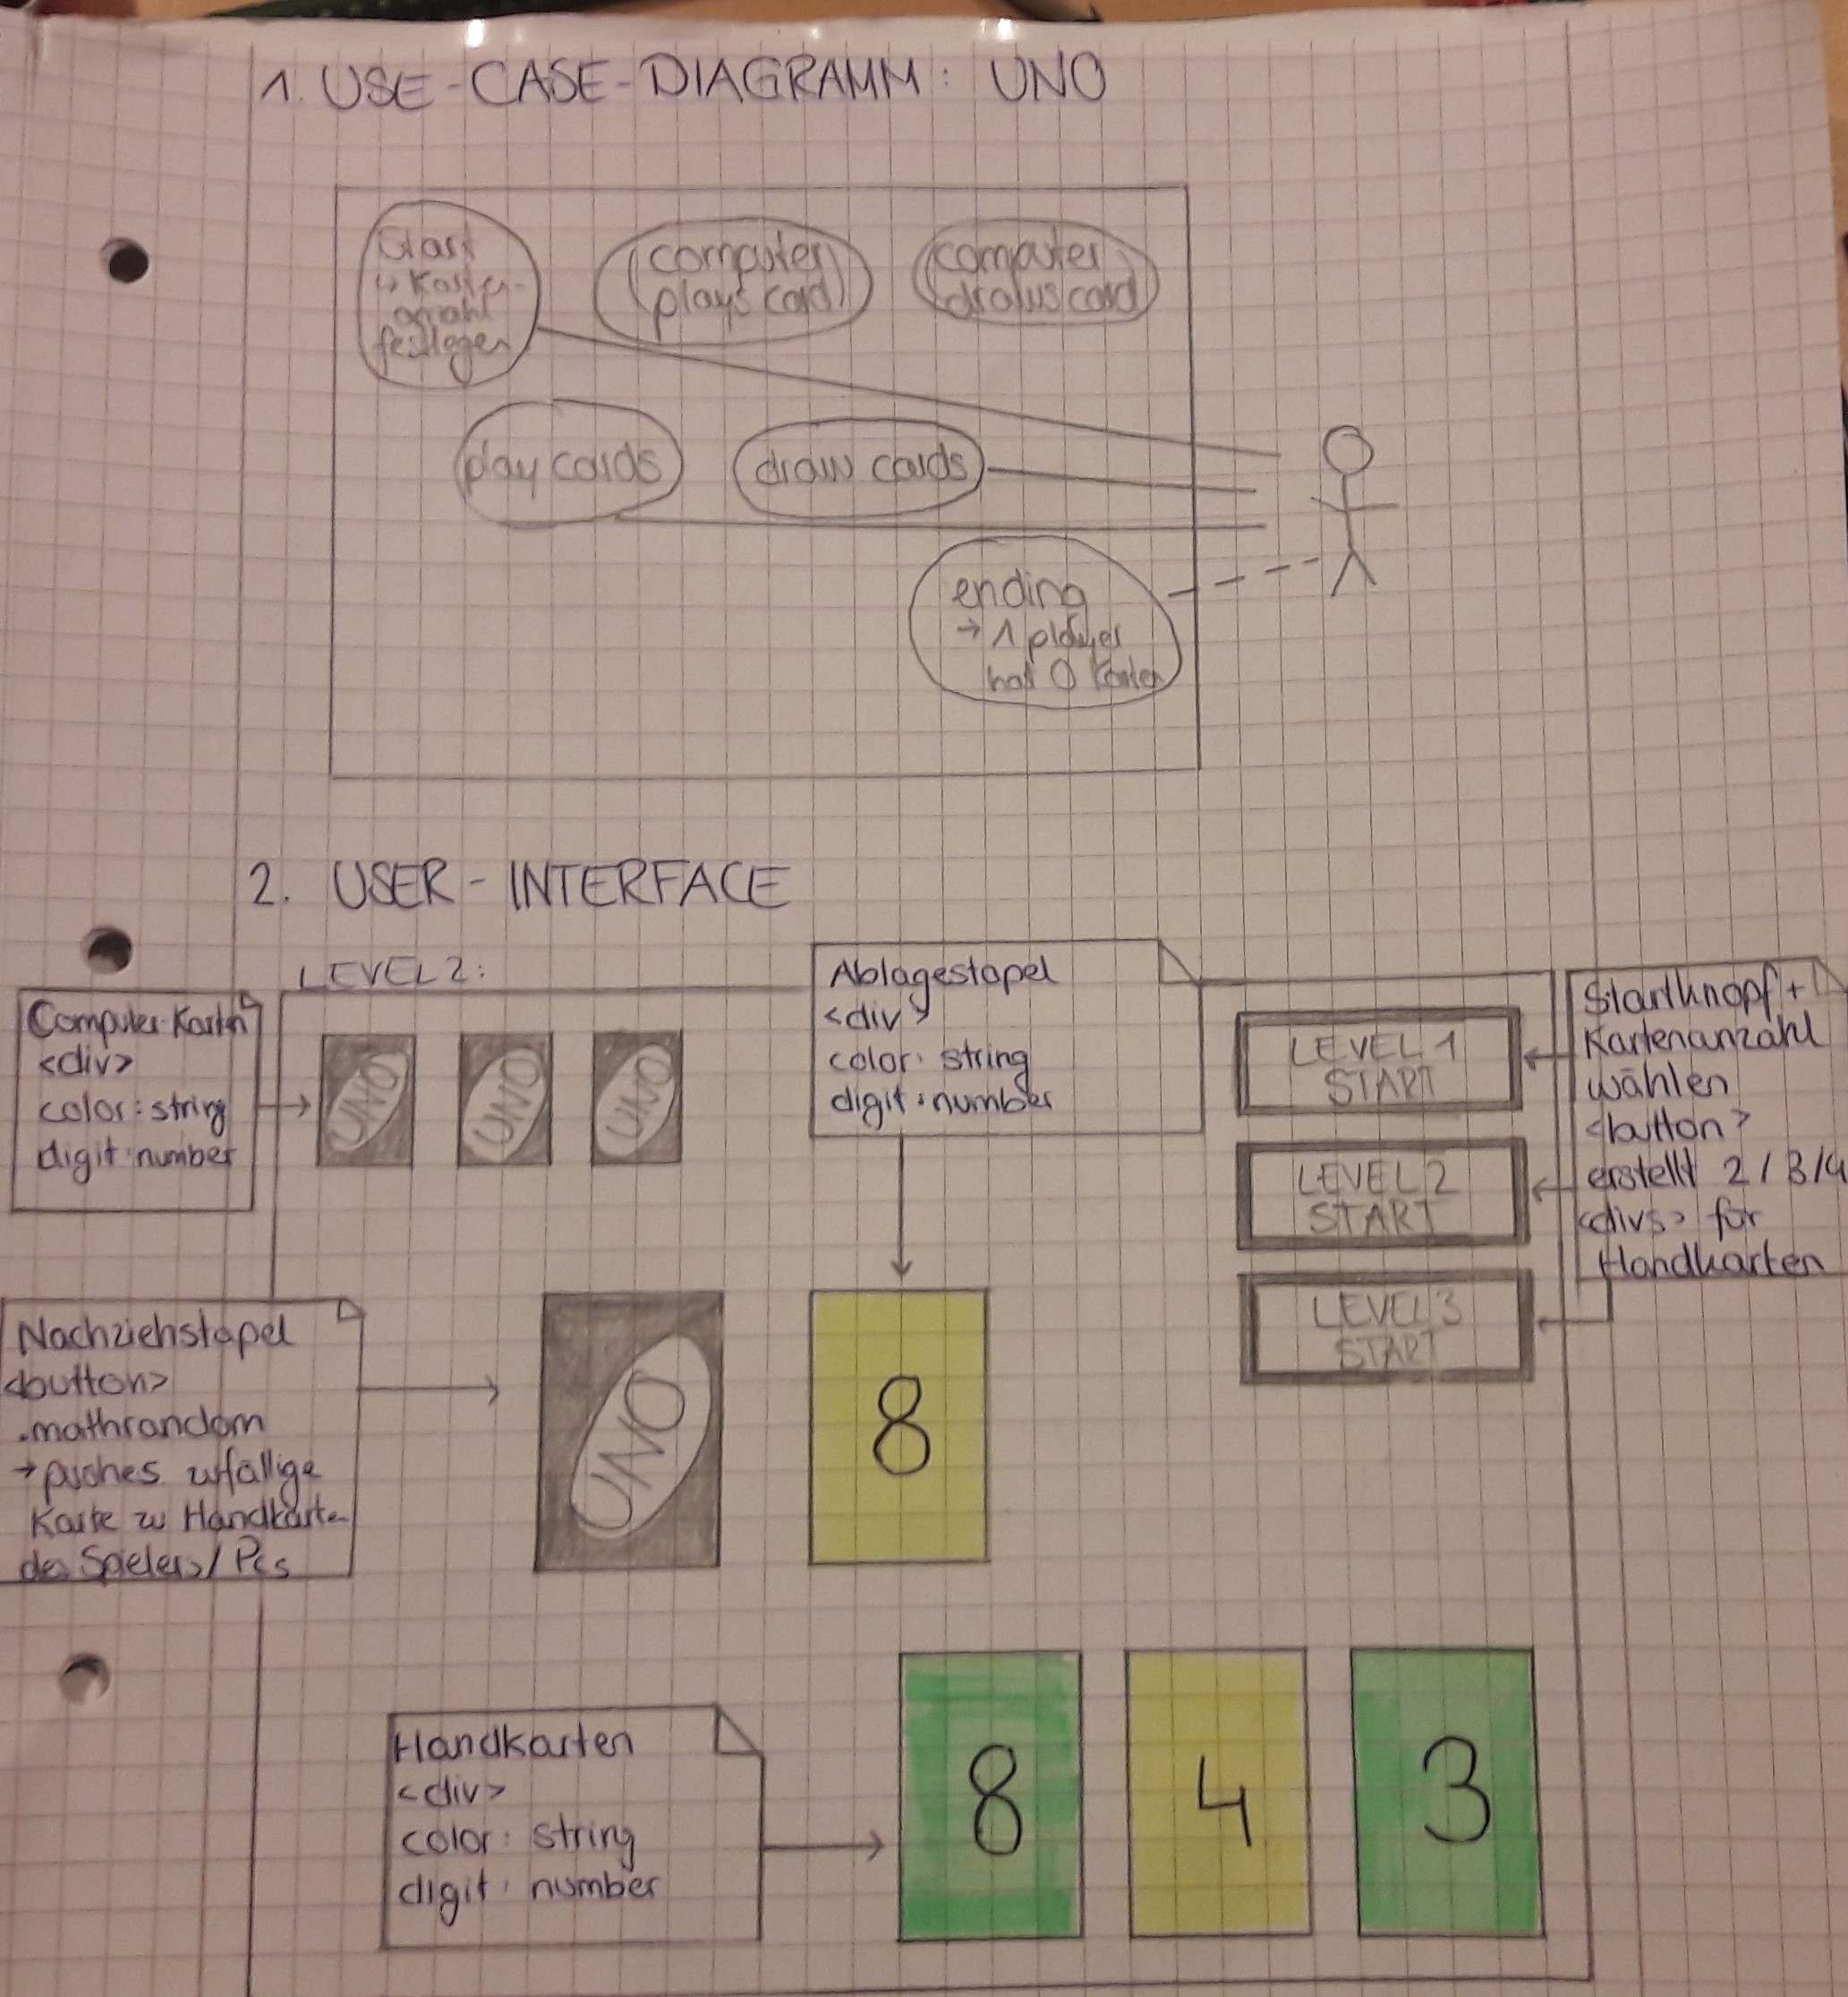 1. USE-CASE-DIAGRAMM: UNO
Start
↳ Karten-
anzahl
festlegen
computer
plays card
computer
draws card
play cards
draw cards
ending
→ 1 player
hat 0 Karten
2. USER-INTERFACE
LEVEL 2:
Computer-Karten
<div>
color: string
digit: number
UNO
UNO
UNO
Ablagestapel
<div>
color: string
digit: number
LEVEL 1
START
LEVEL 2
START
LEVEL 3
START
Startknopf +
Kartenanzahl
wählen
<button>
erstellt 2/3/4
<divs> für
Handkarten
Nachziehstapel
<button>
.mathrandom
→ pushes zufällige
Karte zu Handkarten
des Spielers/Pcs
UNO
8
Handkarten
<div>
color: string
digit: number
8
4
3